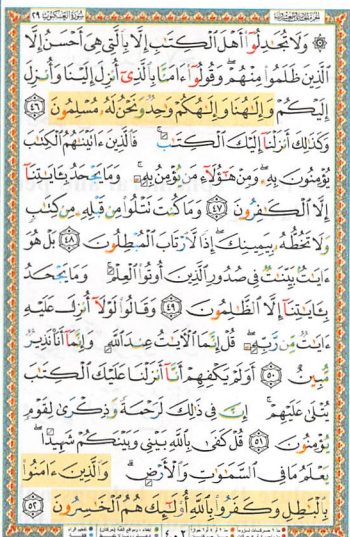 سُورَةُ العَنكَبُوتِ ٢٩
۞ وَلَا تُجَٰدِلُوٓا۟ أَهْلَ ٱلْكِتَٰبِ إِلَّا بِٱلَّتِى هِىَ أَحْسَنُ إِلَّا
ٱلَّذِينَ ظَلَمُوا۟ مِنْهُمْ ۖ وَقُولُوٓا۟ ءَامَنَّا بِٱلَّذِىٓ أُنزِلَ إِلَيْنَا وَأُنزِلَ
إِلَيْكُمْ وَإِلَٰهُنَا وَإِلَٰهُكُمْ وَٰحِدٌ وَنَحْنُ لَهُۥ مُسْلِمُونَ ٤٦
وَكَذَٰلِكَ أَنزَلْنَآ إِلَيْكَ ٱلْكِتَٰبَ ۚ فَٱلَّذِينَ ءَاتَيْنَٰهُمُ ٱلْكِتَٰبَ
يُؤْمِنُونَ بِهِۦ ۖ وَمِنْ هَٰٓؤُلَآءِ مَن يُؤْمِنُ بِهِۦ ۚ وَمَا يَجْحَدُ بِـَٔايَٰتِنَآ
إِلَّا ٱلْكَٰفِرُونَ ٤٧ وَمَا كُنتَ تَتْلُوا۟ مِن قَبْلِهِۦ مِن كِتَٰبٍ
وَلَا تَخُطُّهُۥ بِيَمِينِكَ ۖ إِذًا لَّٱرْتَابَ ٱلْمُبْطِلُونَ ٤٨ بَلْ هُوَ
ءَايَٰتٌۢ بَيِّنَٰتٌ فِى صُدُورِ ٱلَّذِينَ أُوتُوا۟ ٱلْعِلْمَ ۚ وَمَا يَجْحَدُ
بِـَٔايَٰتِنَآ إِلَّا ٱلظَّٰلِمُونَ ٤٩ وَقَالُوا۟ لَوْلَآ أُنزِلَ عَلَيْهِ
ءَايَٰتٌ مِّن رَّبِّهِۦ ۖ قُلْ إِنَّمَا ٱلْـَٔايَٰتُ عِندَ ٱللَّهِ وَإِنَّمَآ أَنَا۠ نَذِيرٌ
مُّبِينٌ ٥٠ أَوَلَمْ يَكْفِهِمْ أَنَّآ أَنزَلْنَا عَلَيْكَ ٱلْكِتَٰبَ
يُتْلَىٰ عَلَيْهِمْ ۚ إِنَّ فِى ذَٰلِكَ لَرَحْمَةً وَذِكْرَىٰ لِقَوْمٍ
يُؤْمِنُونَ ٥١ قُلْ كَفَىٰ بِٱللَّهِ بَيْنِى وَبَيْنَكُمْ شَهِيدًا ۖ
يَعْلَمُ مَا فِى ٱلسَّمَٰوَٰتِ وَٱلْأَرْضِ ۗ وَٱلَّذِينَ ءَامَنُوا۟
بِٱلْبَٰطِلِ وَكَفَرُوا۟ بِٱللَّهِ أُو۟لَٰٓئِكَ هُمُ ٱلْخَٰسِرُونَ ٥٢
٤٠٢